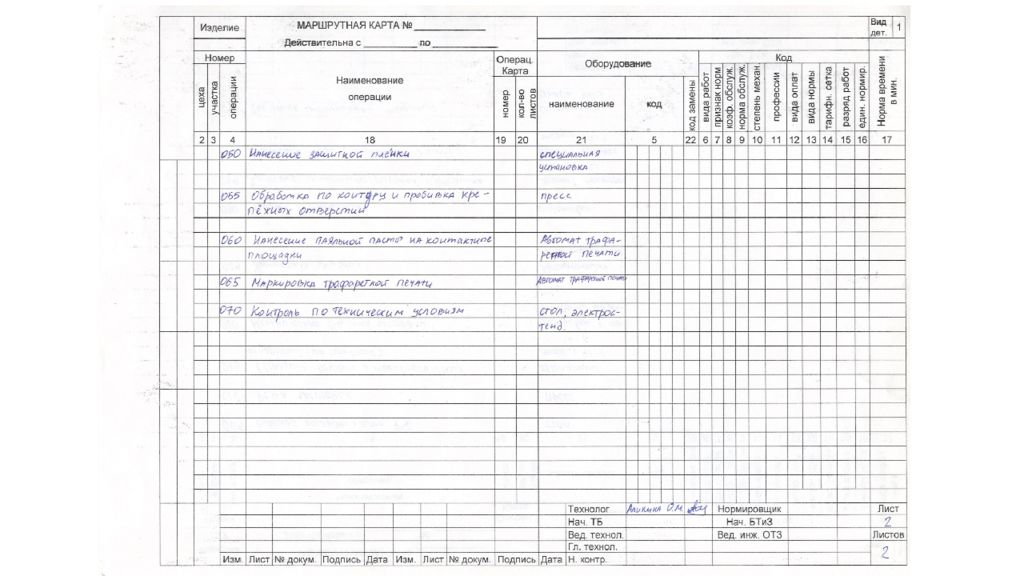 Изделие МАРШРУТНАЯ КАРТА № Вид дет. 1
Действительна с по
Номер Наименование операции Операц. Карта Оборудование Код Норма времени в мин.
цеха участка операции номер кол-во листов наименование код код замены вида работ признак норм коэф. обслуж. норма обслуж. степень механ. профессии вида оплат вида нормы тарифн. сетка разряд работ един. нормир.
2 3 4 18 19 20 21 5 22 6 7 8 9 10 11 12 13 14 15 16 17
050 Нанесение защитной плёнки специальная
установка
055 Обработка по контуру и пробивка кре- пресс
пёжных отверстий
060 Нанесение паяльной пасты на контактные Автомат трафа-
площадки ретной печати
065 Маркировка трафаретной печати Автомат трафаретной печати
070 Контроль по техническим условиям стол, электрос-
тенд
Технолог Аликина О.М. Нормировщик Лист
Нач. ТБ Нач. БТиЗ 2
Вед. технол. Вед. инж. ОТЗ Листов
Гл. технол. 2
Изм. Лист № докум. Подпись Дата Изм. Лист № докум. Подпись Дата Н. контр.